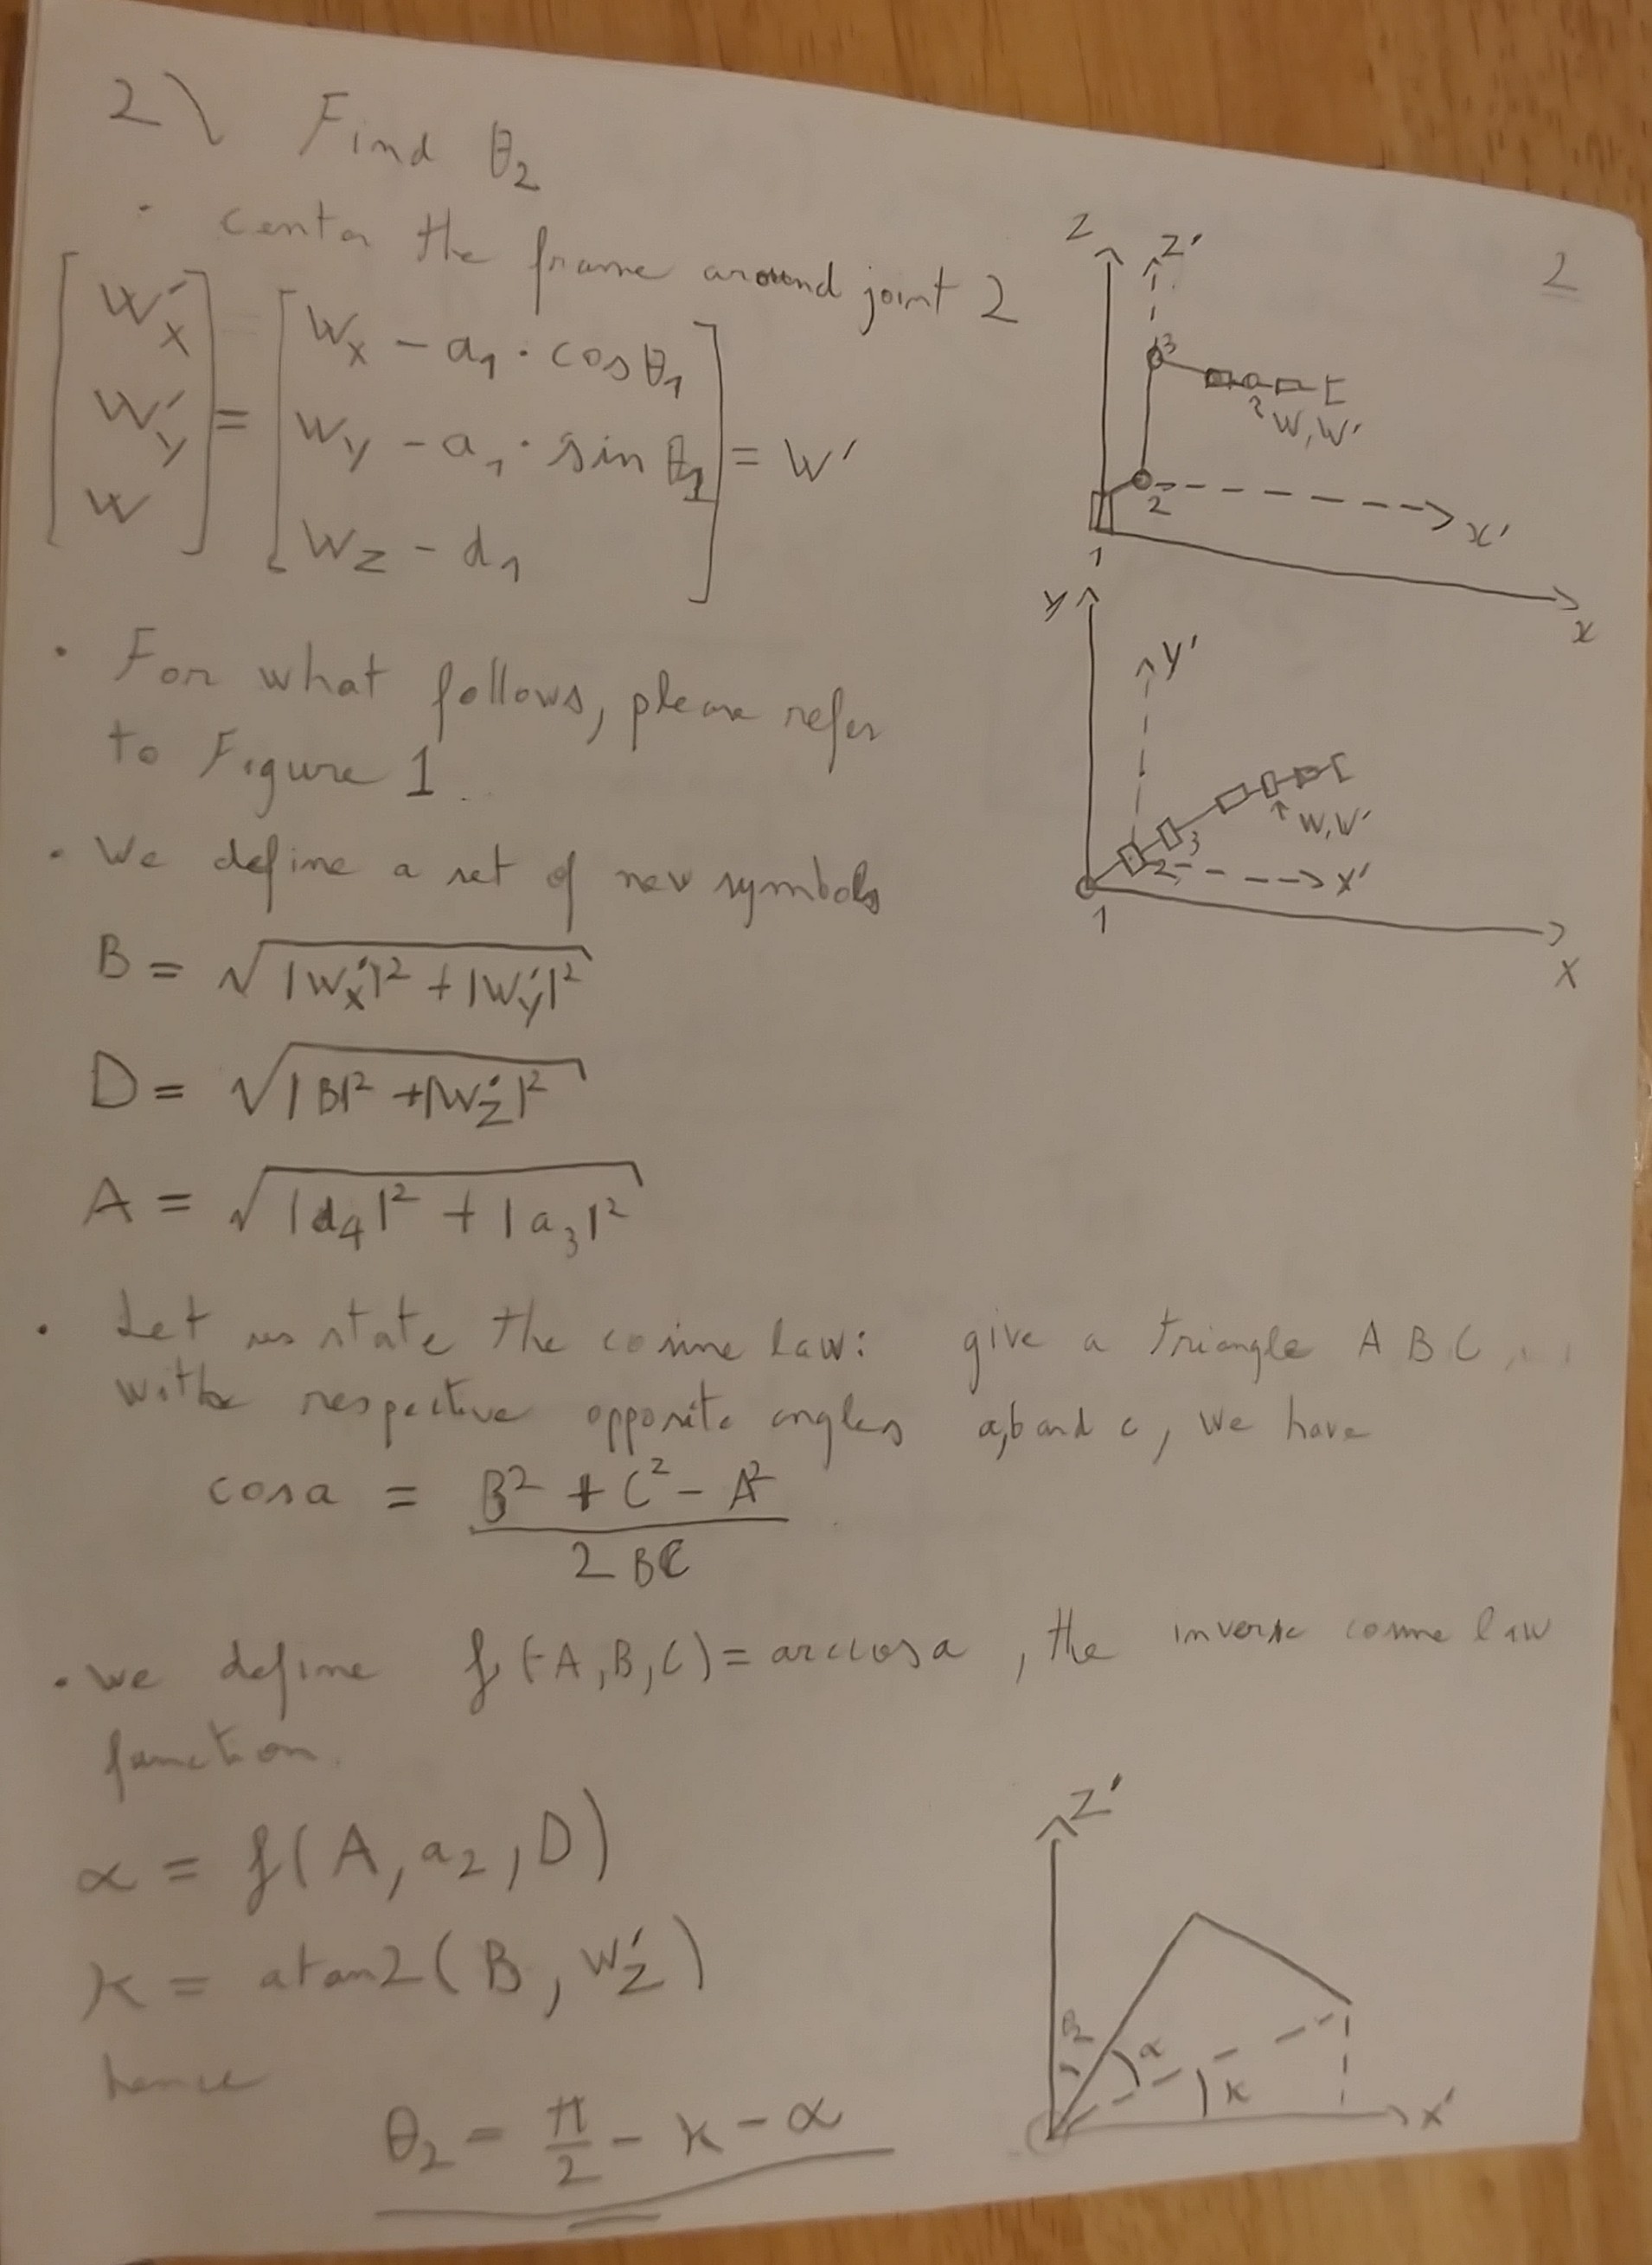 2) Find θ₂
2
· center the frame around joint 2
[W'x W'y W] = [Wx - a₁ · cos θ₁ Wy - a₁ · sin θ₁ Wz - d₁] = W'
z z'
3
W, W'
2
x'
1
x
y
y'
3
W, W'
2
x'
1
x
· For what follows, please refer
to Figure 1.
· We define a set of new symbols
B = √|W'x|² + |W'y|²
D = √|B|² + |W'z|²
A = √|d₄|² + |a₃|²
· Let us state the cosine law: give a triangle A B C
with respective opposite angles a, b and c, we have
cos a = B² + C² - A²
2 BC
· We define f(A, B, C) = arccos a, the inverse cosine law
function.
α = f(A, a₂, D)
κ = atan2(B, W'z)
hence
θ₂ = π/2 - κ - α
z'
θ₂
α
κ
x'